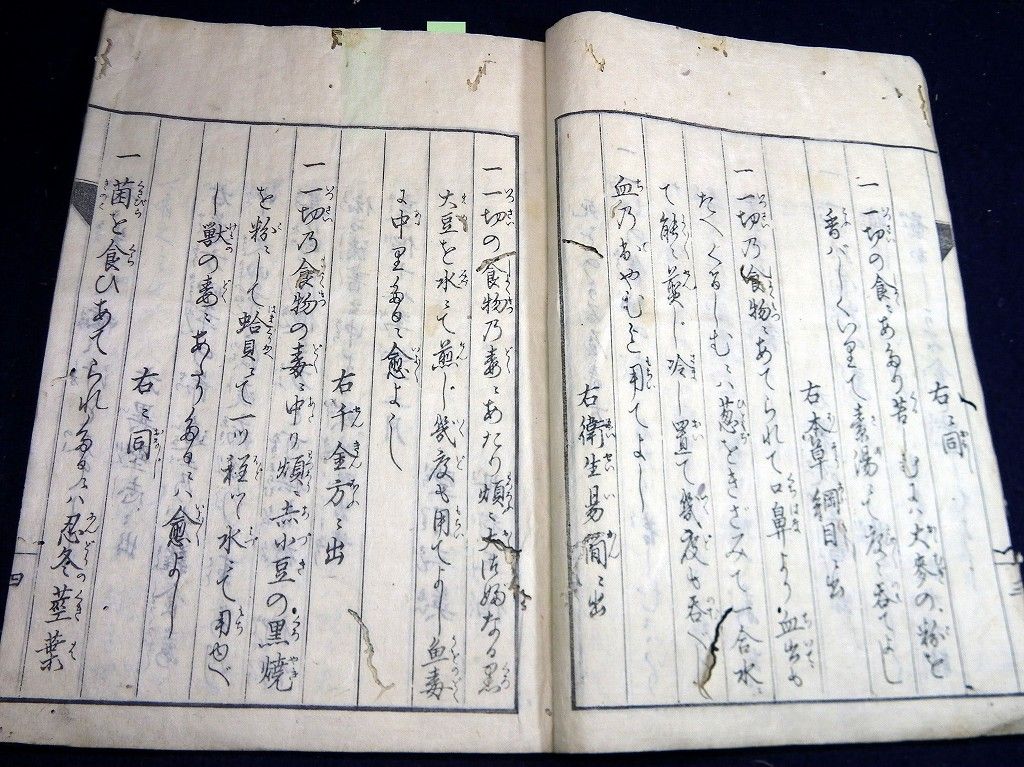 右ニ同
一 一切の食ニあたり苦しむには大麦の粉を
香ばしくいりて素湯にて度々呑てよし
右本草綱目ニ出
一 一切乃食物ニあてられて口鼻より血出も
だへくるしむニハ葱をきざみて一合水ニ
て能々煎じ冷し置て幾度も呑べし
血乃出やむまで用てよし
右衛生易簡ニ出
一 一切の食物乃毒ニあたり煩ニ大にわるは黒
大豆を水ニて煎じ幾度も用てよし魚毒
に中りたるニも愈よし
右千金方ニ出
一 一切乃食物の毒ニ中り煩ニ赤小豆の黒焼
を粉ニして蛤貝ニて一ツ程ヅヽ水ニて用ゆべし
獣の毒ニあたりたるニハ愈よし
右ニ同
一 菌を食ひあてられたるニハ忍冬茎葉